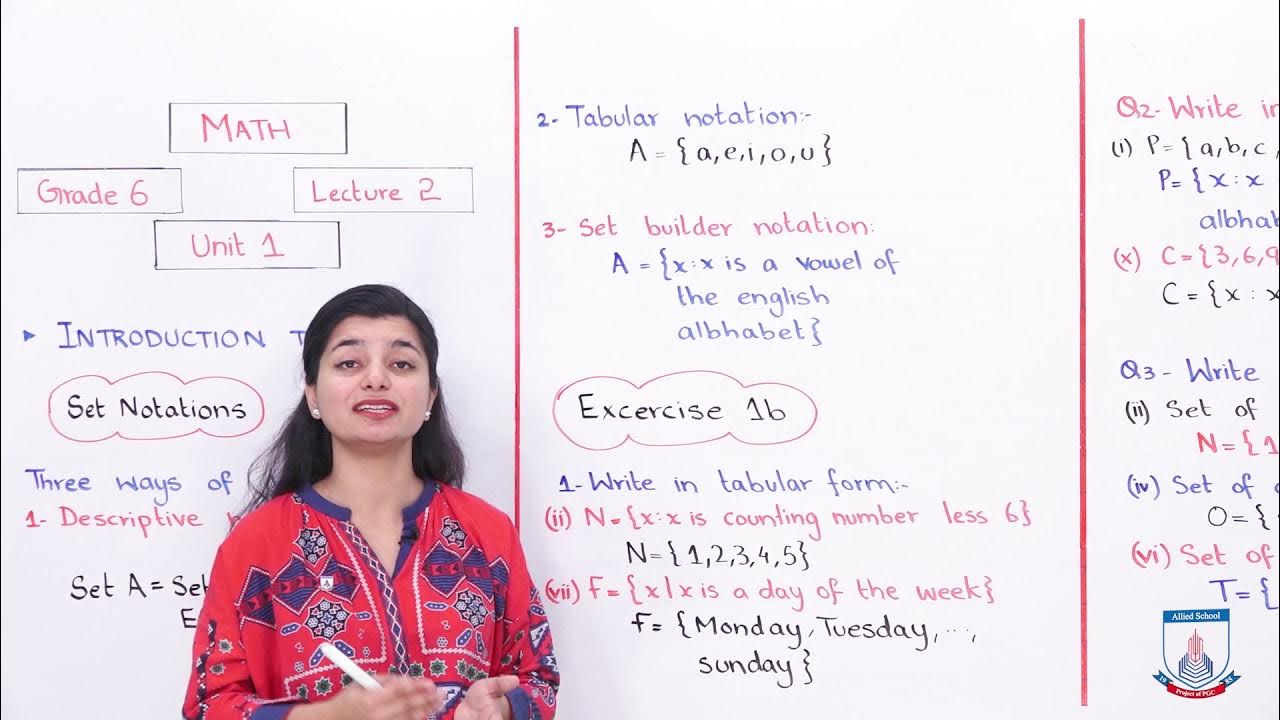 MATH
Grade 6
Lecture 2
Unit 1
INTRODUCTION
Set Notations
Three ways of
1- Descriptive
Set A = Set
2- Tabular notation:-
A = {a,e,i,o,u}
3- Set builder notation:
A = {x:x is a vowel of
the english
albhabet}
Excercise 1b
1- Write in tabular form:-
(ii) N={x:x is counting number less 6}
N={1,2,3,4,5}
(vii) F={x|x is a day of the week}
F= {Monday, Tuesday, ...,
sunday}
Q2- Write in
(i) P={a,b,c,
P={x:x
albhabe
(x) C={3,6,9
C={x:x
Q3- Write
(ii) Set of
N={1
(iv) Set of
O={
(vi) Set of
T={
Allied School
Project of PGC
19 85